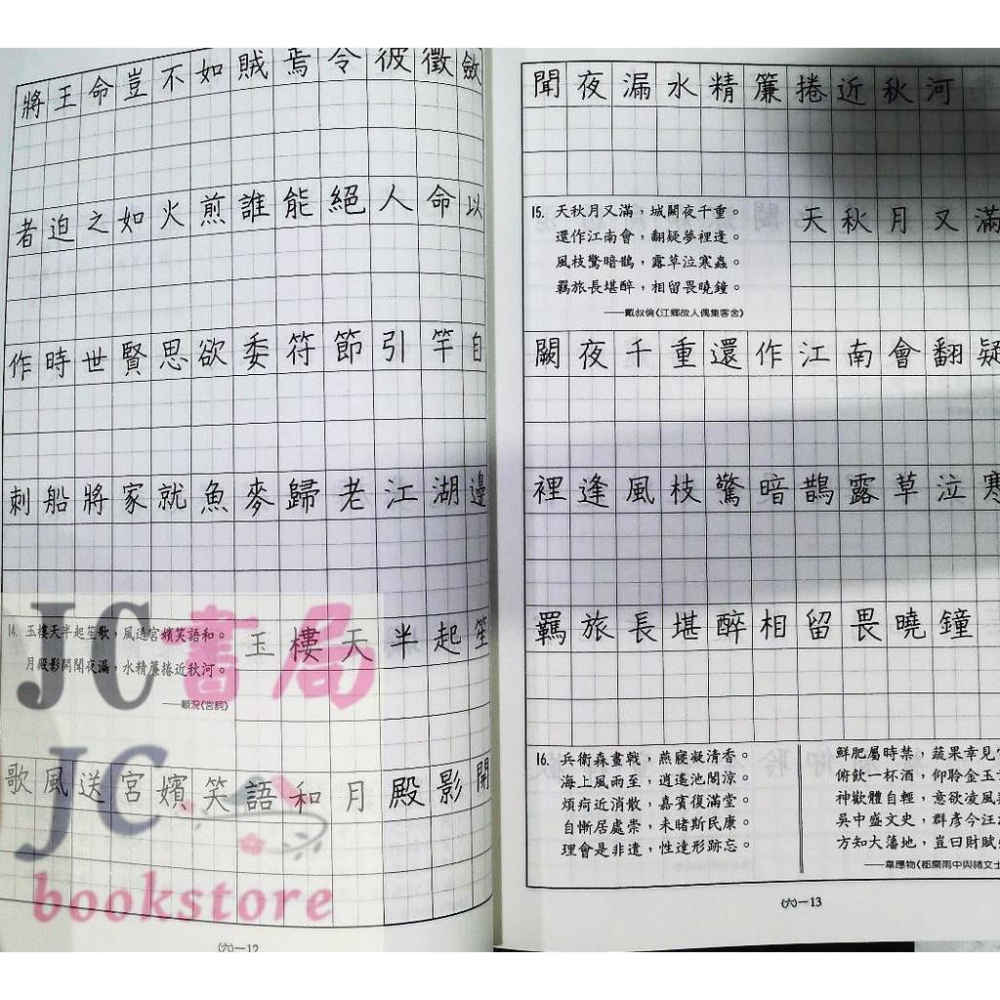 將王命豈不如賊焉令彼徵斂
者迫之如火煎誰能絕人命以
作時世賢思欲委符節引竿自
刺船將家就魚麥歸老江湖邊
14. 玉樓天半起笙歌，風送宮嬪笑語和。
月殿影開聞夜漏，水精簾捲近秋河。
——顧況〈宮詞〉
玉樓天半起笙
歌風送宮嬪笑語和月殿影開
JC書局
JC
bookstore
㈥—12
聞夜漏水精簾捲近秋河
15. 天秋月又滿，城闕夜千重。
還作江南會，翻疑夢裡逢。
風枝驚暗鵲，露草泣寒蟲。
羈旅長堪醉，相留畏曉鐘。
——戴叔倫〈江鄉故人偶集客舍〉
天秋月又滿
闕夜千重還作江南會翻疑
裡逢風枝驚暗鵲露草泣寒
羈旅長堪醉相留畏曉鐘
16. 兵衛森畫戟，燕寢凝清香。
海上風雨至，逍遙池閣涼。
煩疴近消散，嘉賓復滿堂。
自慚居處崇，未睹斯民康。
理會是非遣，性達形跡忘。
鮮肥屬時禁，蔬果幸見
俯飲一杯酒，仰聆金玉
神歡體自輕，意欲凌風
吳中盛文史，群彥今汪
方知大藩地，豈曰財賦
——韋應物〈郡齋雨中與諸文士
㈥—13